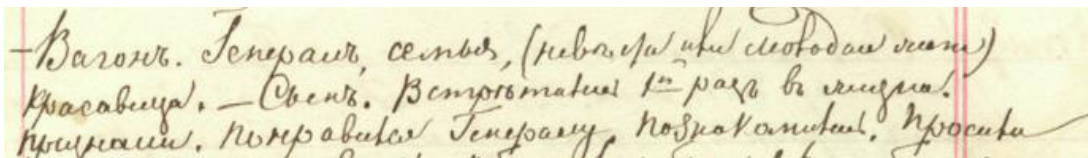 — Вагонъ. Генералъ, семья, (невѣста или молодая жена)
красавица. — Сынъ. Встрѣтились 1й разъ въ жизни.
Понравился Генералу, познакомились. Просили